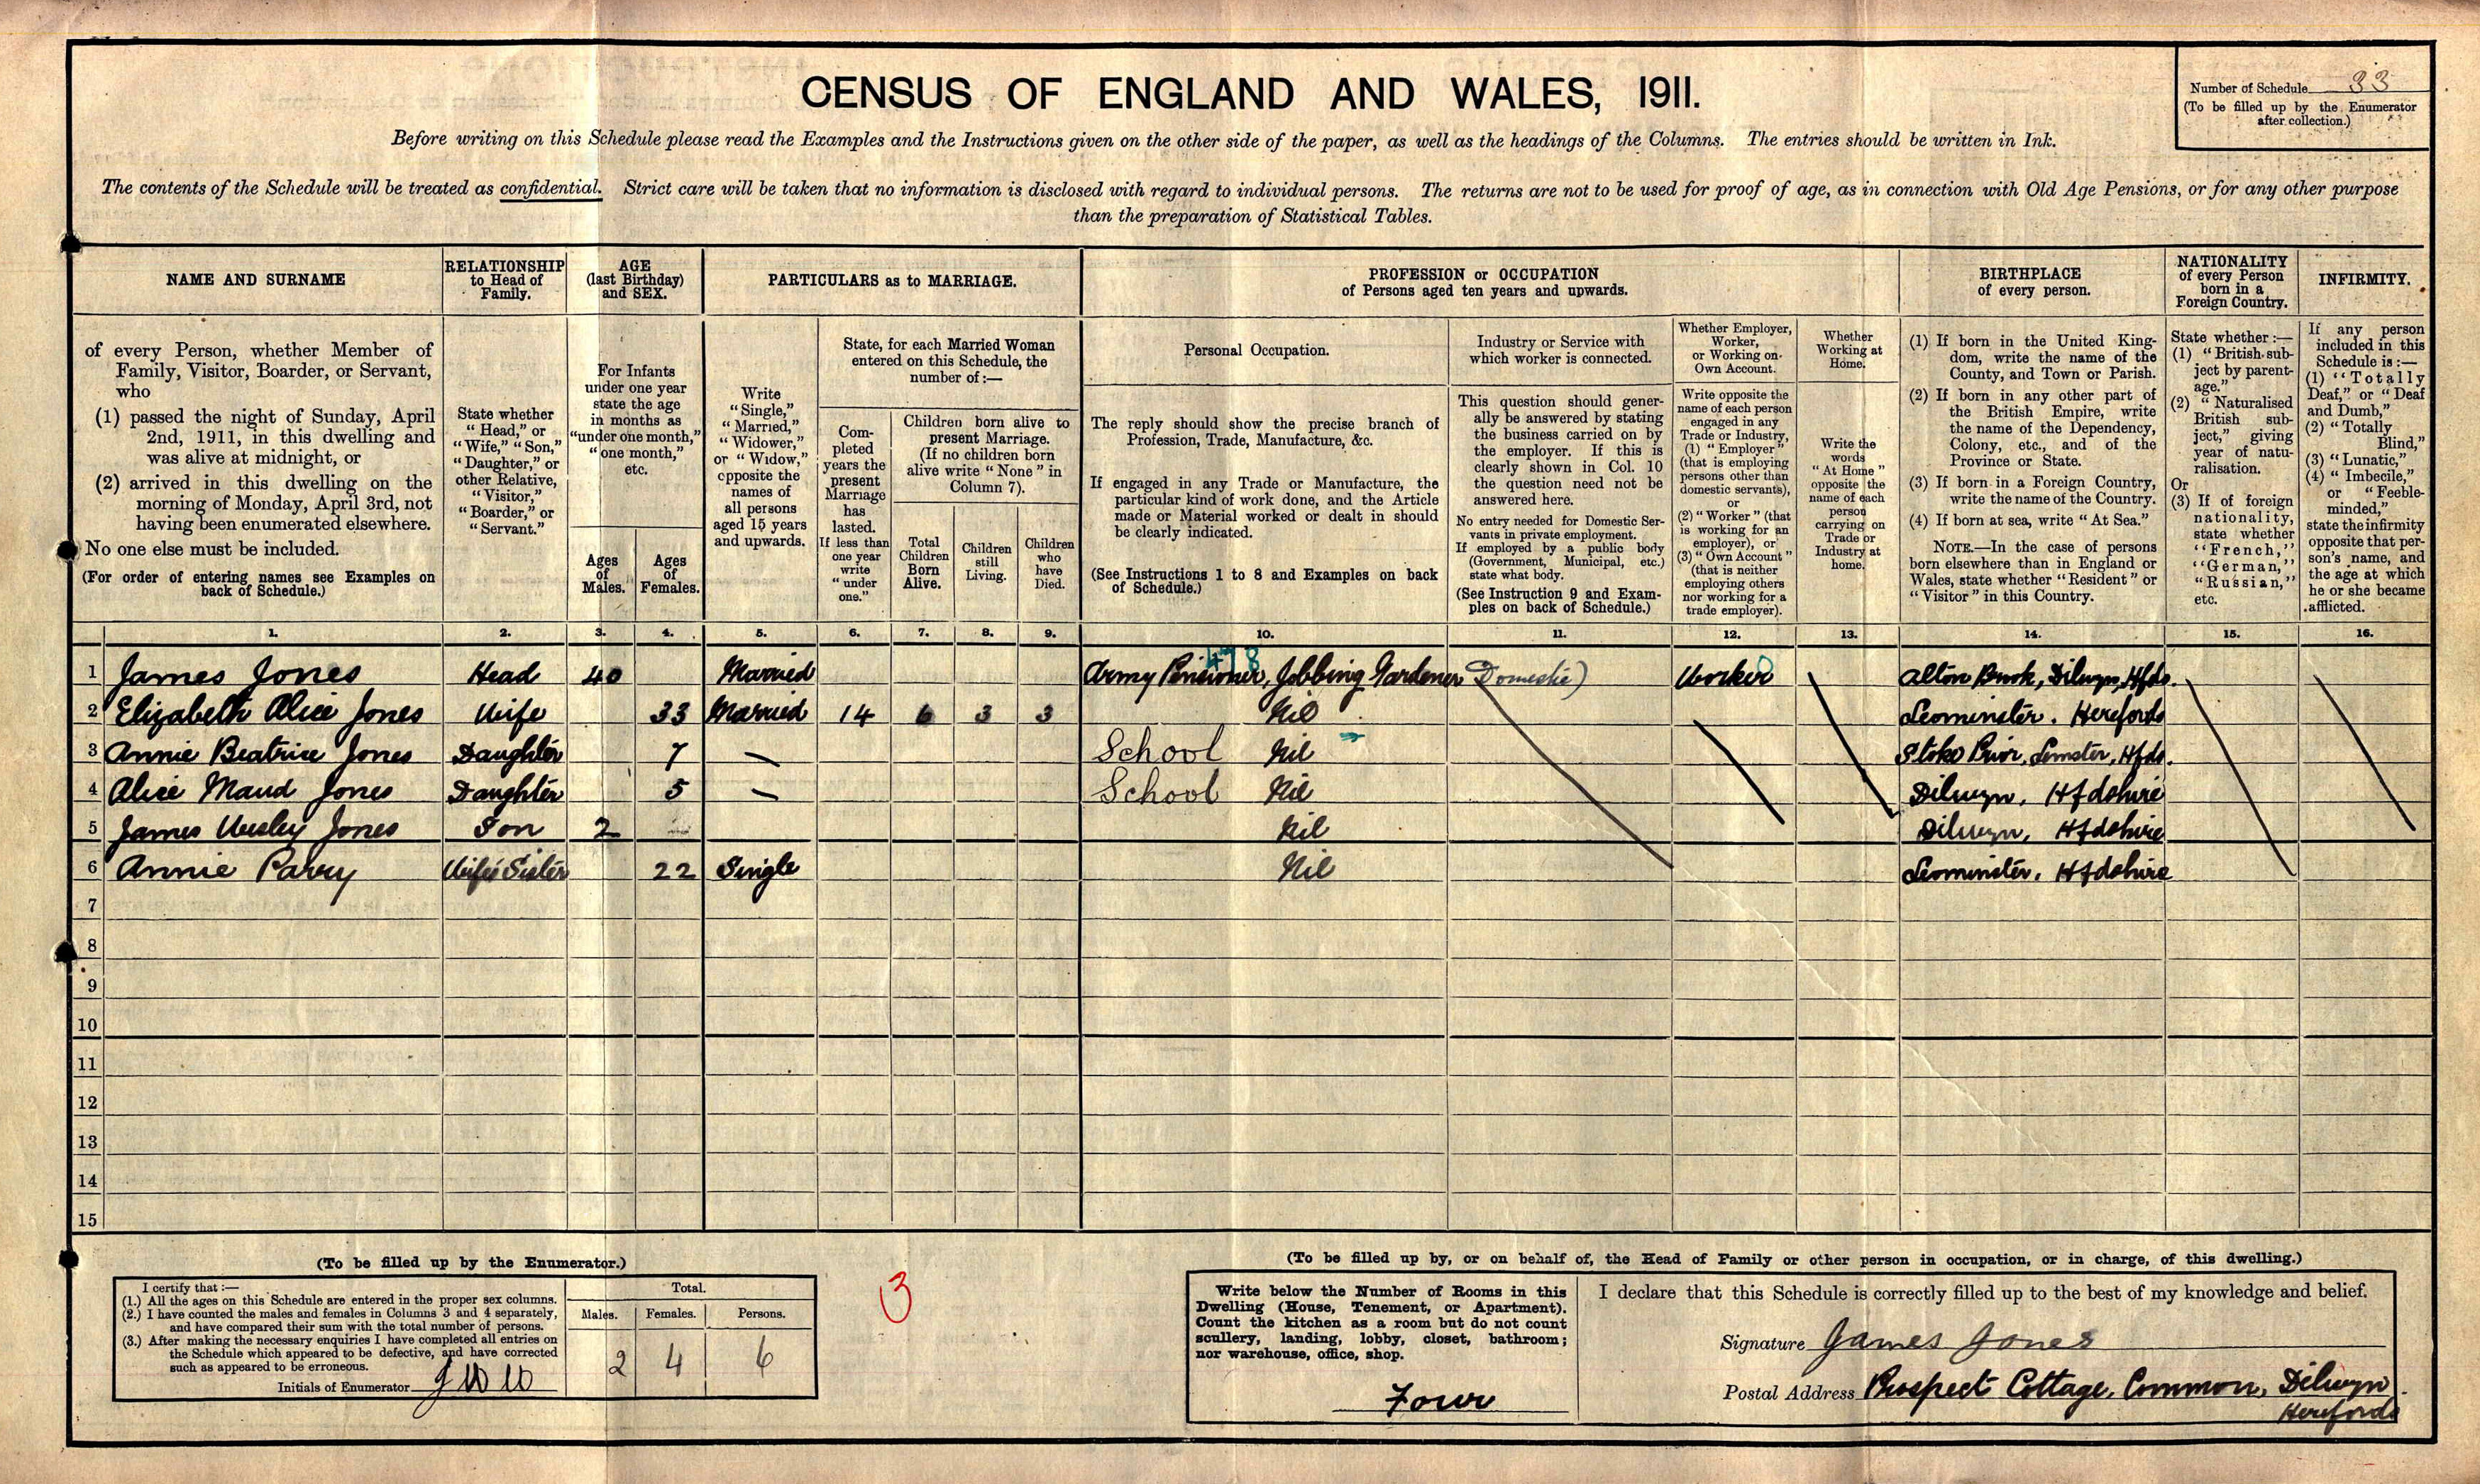 CENSUS OF ENGLAND AND WALES, 1911.
Number of Schedule 33
(To be filled up by the Enumerator
after collection.)
Before writing on this Schedule please read the Examples and the Instructions given on the other side of the paper, as well as the headings of the Columns. The entries should be written in Ink.
The contents of the Schedule will be treated as confidential. Strict care will be taken that no information is disclosed with regard to individual persons. The returns are not to be used for proof of age, as in connection with Old Age Pensions, or for any other purpose
than the preparation of Statistical Tables.
NAME AND SURNAME
of every Person, whether Member of
Family, Visitor, Boarder, or Servant,
who
(1) passed the night of Sunday, April
2nd, 1911, in this dwelling and
was alive at midnight, or
(2) arrived in this dwelling on the
morning of Monday, April 3rd, not
having been enumerated elsewhere.
No one else must be included.
(For order of entering names see Examples on
back of Schedule.)
RELATIONSHIP
to Head of
Family.
State whether
"Head," or
"Wife," "Son,"
"Daughter," or
other Relative,
"Visitor,"
"Boarder," or
"Servant."
AGE
(last Birthday)
and SEX.
For Infants
under one year
state the age
in months as
"under one month,"
"one month,"
etc.
Ages
of
Males.
Ages
of
Females.
PARTICULARS as to MARRIAGE.
Write
"Single,"
"Married,"
"Widower,"
or "Widow,"
opposite the
names of
all persons
aged 15 years
and upwards.
State, for each Married Woman
entered on this Schedule, the
number of:—
Com-
pleted
years the
present
Marriage
has
lasted.
If less than
one year
write
"under
one."
Children born alive to
present Marriage.
(If no children born
alive write "None" in
Column 7).
Total
Children
Born
Alive.
Children
still
Living.
Children
who
have
Died.
PROFESSION or OCCUPATION
of Persons aged ten years and upwards.
Personal Occupation.
The reply should show the precise branch of
Profession, Trade, Manufacture, &c.
If engaged in any Trade or Manufacture, the
particular kind of work done, and the Article
made or Material worked or dealt in should
be clearly indicated.
(See Instructions 1 to 8 and Examples on back
of Schedule.)
Industry or Service with
which worker is connected.
This question should gener-
ally be answered by stating
the business carried on by
the employer. If this is
clearly shown in Col. 10
the question need not be
answered here.
No entry needed for Domestic Ser-
vants in private employment.
If employed by a public body
(Government, Municipal, etc.)
state what body.
(See Instruction 9 and Exam-
ples on back of Schedule.)
Whether Employer,
Worker,
or Working on
Own Account.
Write opposite the
name of each person
engaged in any
Trade or Industry,
(1) "Employer"
(that is employing
persons other than
domestic servants),
or
(2) "Worker" (that
is working for an
employer), or
(3) "Own Account"
(that is neither
employing others
nor working for a
trade employer).
Whether
Working at
Home.
Write the
words
"At Home"
opposite the
name of each
person
carrying on
Trade or
Industry at
home.
BIRTHPLACE
of every person.
(1) If born in the United King-
dom, write the name of the
County, and Town or Parish.
(2) If born in any other part of
the British Empire, write
the name of the Dependency,
Colony, etc., and of the
Province or State.
(3) If born in a Foreign Country,
write the name of the Country.
(4) If born at sea, write "At Sea."
NOTE.—In the case of persons
born elsewhere than in England or
Wales, state whether "Resident" or
"Visitor" in this Country.
NATIONALITY
of every Person
born in a
Foreign Country.
State whether:—
(1) "British sub-
ject by parent-
age."
(2) "Naturalised
British sub-
ject," giving
year of natu-
ralisation.
Or
(3) If of foreign
nationality,
state whether
"French,"
"German,"
"Russian,"
etc.
INFIRMITY.
If any person
included in this
Schedule is:—
(1) "Totally
Deaf," or "Deaf
and Dumb,"
(2) "Totally
Blind,"
(3) "Lunatic,"
(4) "Imbecile,"
or "Feeble-
minded,"
state the infirmity
opposite that per-
son's name, and
the age at which
he or she became
afflicted.
1. 2. 3. 4. 5. 6. 7. 8. 9. 10. 11. 12. 13. 14. 15. 16.
478
1 James Jones Head 40 Married Army Pensioner, Jobbing Gardener Domestic) Worker Alton Brook, Dilwyn, Hfds.
2 Elizabeth Alice Jones Wife 33 Married 14 6 3 3 Nil Leominster. Herefords
3 Annie Beatrice Jones Daughter 7 — School Nil Stoke Prior, Lemster, Hfds.
4 Alice Maud Jones Daughter 5 — School Nil Dilwyn, Hfdshire
5 James Wesley Jones Son 2 Nil Dilwyn, Hfdshire
6 Annie Parry Wife's Sister 22 Single Nil Leominster, Hfdshire
7
8
9
10
11
12
13
14
15
(To be filled up by the Enumerator.)
I certify that:—
(1.) All the ages on this Schedule are entered in the proper sex columns.
(2.) I have counted the males and females in Columns 3 and 4 separately,
and have compared their sum with the total number of persons.
(3.) After making the necessary enquiries I have completed all entries on
the Schedule which appeared to be defective, and have corrected
such as appeared to be erroneous.
Initials of Enumerator
Total.
Males. Females. Persons.
2 4 6
3
(To be filled up by, or on behalf of, the Head of Family or other person in occupation, or in charge, of this dwelling.)
Write below the Number of Rooms in this
Dwelling (House, Tenement, or Apartment).
Count the kitchen as a room but do not count
scullery, landing, lobby, closet, bathroom;
nor warehouse, office, shop.
Four
I declare that this Schedule is correctly filled up to the best of my knowledge and belief.
Signature James Jones
Postal Address Prospect Cottage, Common, Dilwyn
Herefords